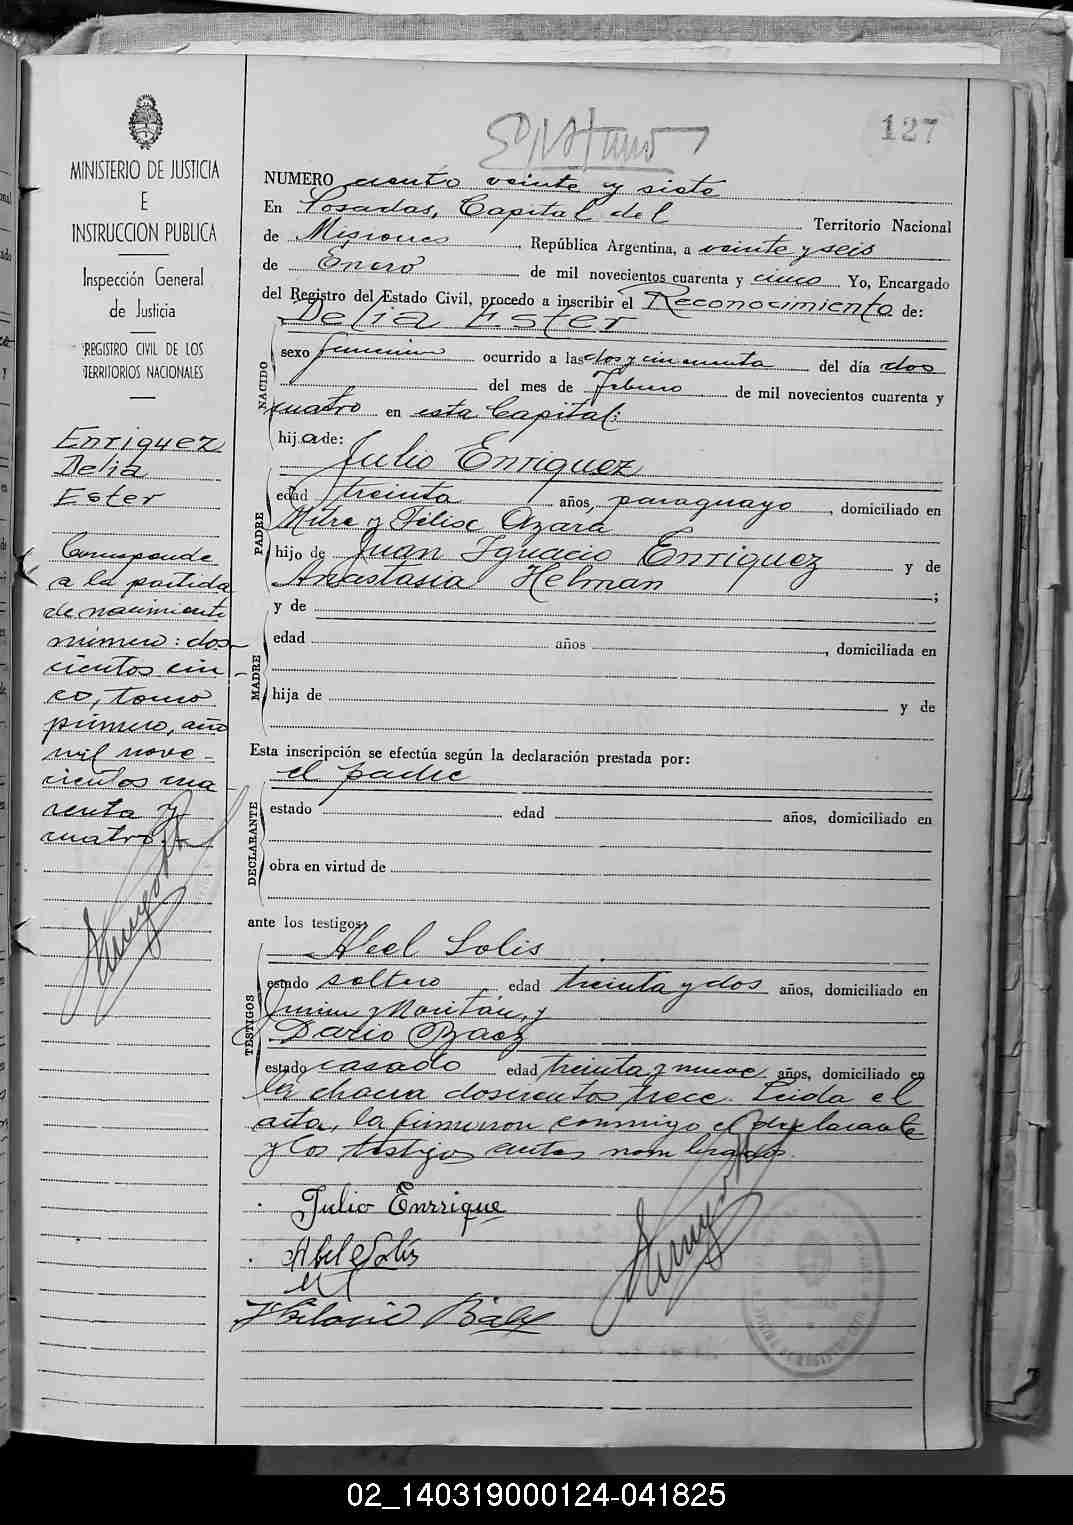 127
MINISTERIO DE JUSTICIA
E
INSTRUCCION PUBLICA
Inspección General
de Justicia
REGISTRO CIVIL DE LOS
TERRITORIOS NACIONALES
Enriquez
Delia
Ester
Corresponde
a la partida
de nacimiento
número: dos-
cientos cin-
co, tomo
primero, año
mil nove-
cientos cua
renta y
cuatro.
NUMERO ciento veinte y siete
En Posadas, Capital del Territorio Nacional
de Misiones, República Argentina, a veinte y seis
de Enero de mil novecientos cuarenta y cinco Yo, Encargado
del Registro del Estado Civil, procedo a inscribir el Reconocimiento de:
Delia Ester
NACIDO
sexo femenino ocurrido a las dos y cincuenta del día dos
del mes de Febrero de mil novecientos cuarenta y
cuatro en esta Capital:
hija de:
Julio Enriquez
PADRE
edad treinta años, paraguayo, domiciliado en
Mitre y Félise Azara
hijo de Juan Ignacio Enriquez y de
Anastasia Helman ;
y de
MADRE
edad años , domiciliada en
hija de y de
Esta inscripción se efectúa según la declaración prestada por:
el padre
DECLARANTE
estado edad años, domiciliado en
obra en virtud de
ante los testigos:
Abel Solis
TESTIGOS
estado soltero edad treinta y dos años, domiciliado en
Junin y Moritán, y
Dario Baez
estado casado edad treinta y nueve años, domiciliado en
la chacra doscientos trece. Leida el
acta, la firmaron conmigo el declarante
y los testigos antes nombrados.
Julio Enrrique
Abel Solis
02_140319000124-041825